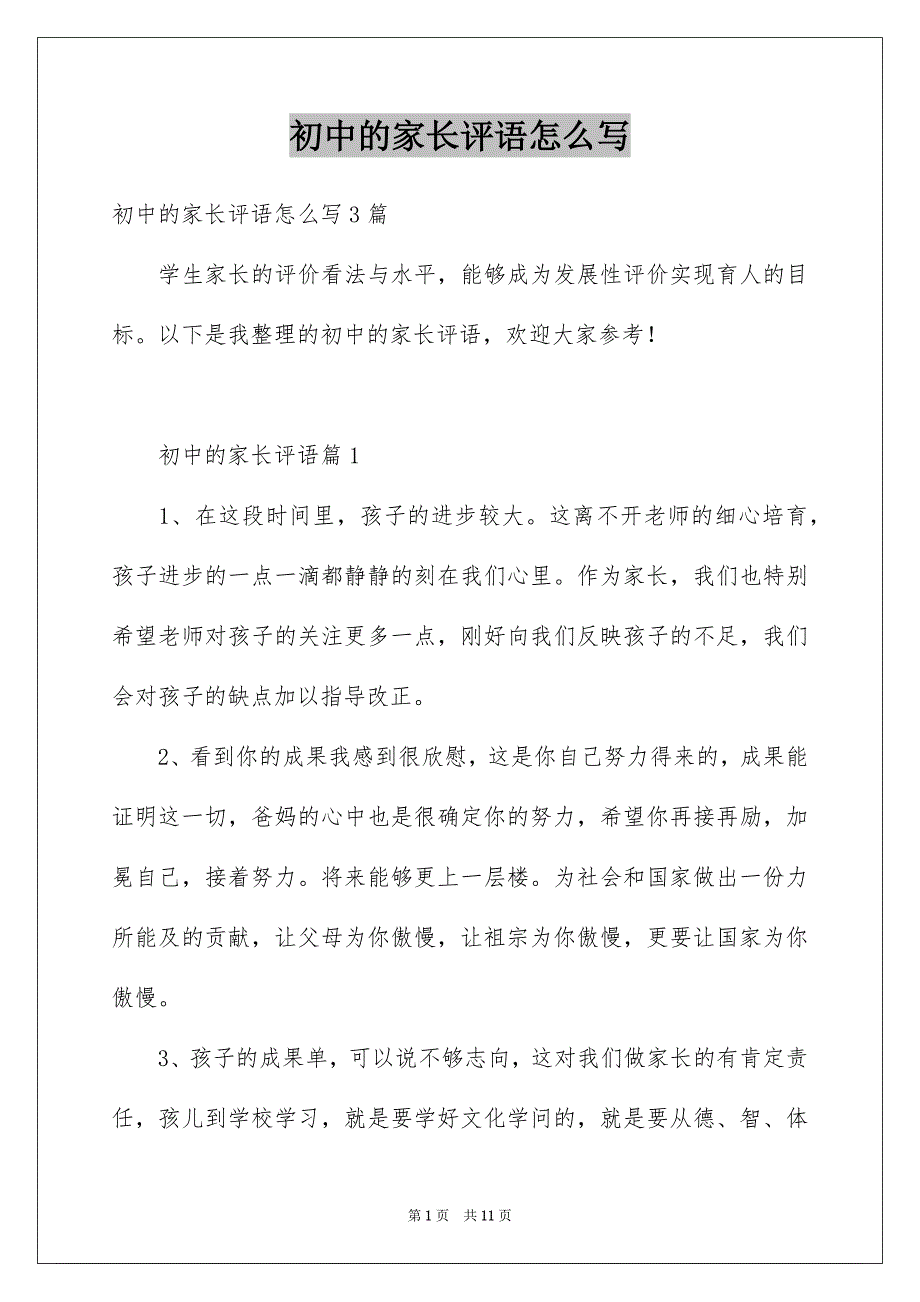 初中的家长评语怎么写
初中的家长评语怎么写 3 篇
学生家长的评价看法与水平，能够成为发展性评价实现育人的目
标。以下是我整理的初中的家长评语，欢迎大家参考！
初中的家长评语篇 1
1、在这段时间里，孩子的进步较大。这离不开老师的细心培育，
孩子进步的一点一滴都静静的刻在我们心里。作为家长，我们也特别
希望老师对孩子的关注更多一点，刚好向我们反映孩子的不足，我们
会对孩子的缺点加以指导改正。
2、看到你的成果我感到很欣慰，这是你自己努力得来的，成果能
证明这一切，爸妈的心中也是很确定你的努力，希望你再接再励，加
冕自己，接着努力。将来能够更上一层楼。为社会和国家做出一份力
所能及的贡献，让父母为你傲慢，让祖宗为你傲慢，更要让国家为你
傲慢。
3、孩子的成果单，可以说不够志向，这对我们做家长的有肯定责
任，孩儿到学校学习，就是要学好文化学问的，就是要从德、智、体
第 1 页 共 11 页